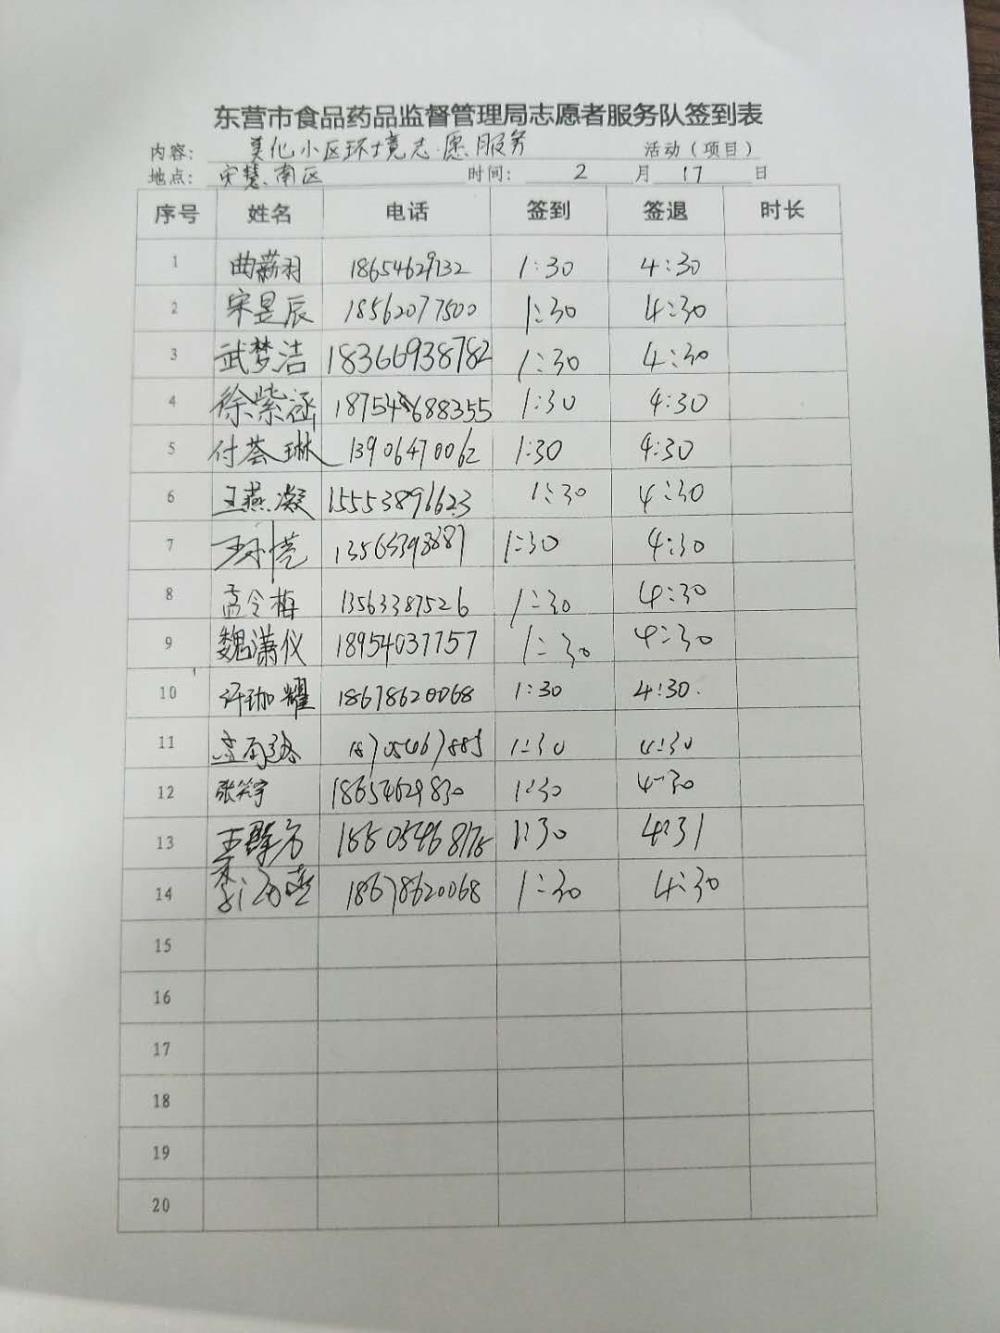 东营市食品药品监督管理局志愿者服务队签到表
内容: 美化小区环境志愿服务 活动（项目）
地点: 安慧南区 时间: 2 月 17 日
序号 姓名 电话 签到 签退 时长
1 曲荔羽 18654629732 1:30 4:30
2 宋昱辰 18562077500 1:30 4:30
3 武梦洁 18366938782 1:30 4:30
4 徐紫涵 1:30 4:30
5 付荟琳 13906470062 1:30 4:30
6 王燕凝 15553896623 1:30 4:30
7 1:30 4:30
8 孟令梅 13563387526 1:30 4:30
9 魏潇仪 18954037757 1:30 4:30
10 许珈耀 18678620068 1:30 4:30.
11 1:30 4:30
12 18654629830 1:30 4:30
13 王群方 1:30 4:31
14 18678620068 1:30 4:30
15
16
17
18
19
20